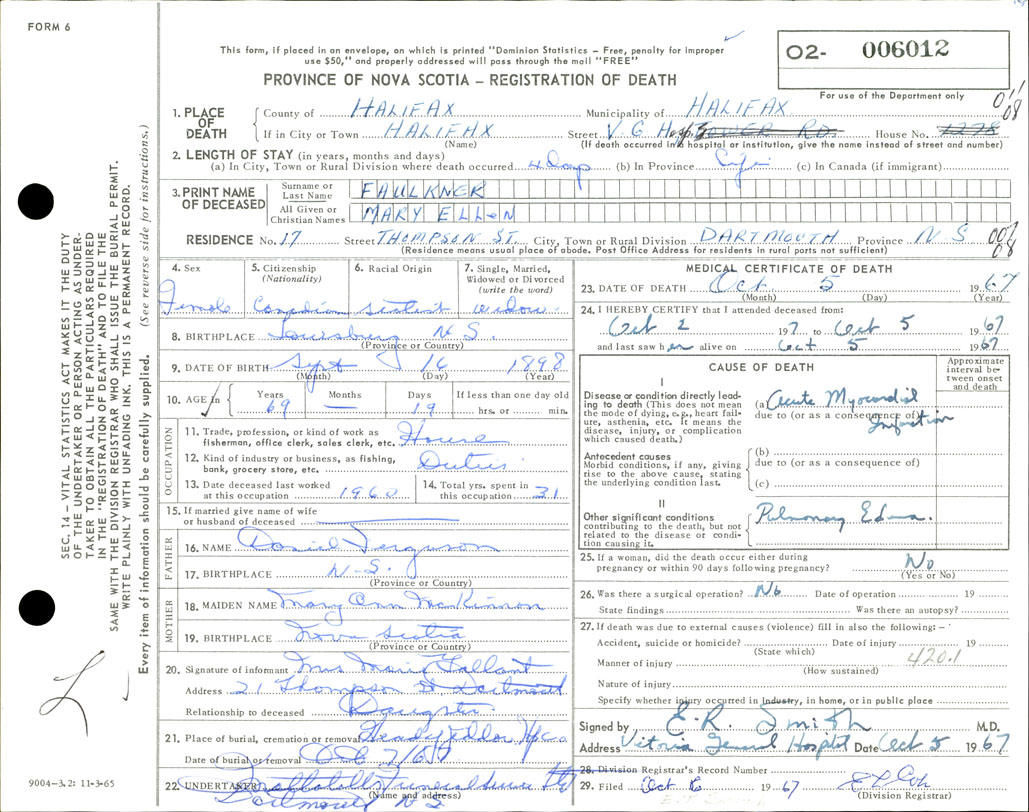 FORM 6
This form, if placed in an envelope, on which is printed "Dominion Statistics – Free, penalty for improper
use $50," and properly addressed will pass through the mail "FREE"
PROVINCE OF NOVA SCOTIA – REGISTRATION OF DEATH
O2- 006012
For use of the Department only
1. PLACE OF DEATH
County of HALIFAX Municipality of HALIFAX
If in City or Town HALIFAX Street V. G. Hosp. BOWER RD. House No. 1278
(Name) (If death occurred in hospital or institution, give the name instead of street and number)
2. LENGTH OF STAY (in years, months and days)
(a) In City, Town or Rural Division where death occurred 4 days (b) In Province Life (c) In Canada (if immigrant)
3. PRINT NAME OF DECEASED
Surname or Last Name FAULKNER
All Given or Christian Names MARY ELLEN
RESIDENCE No. 17 Street THOMPSON ST. City, Town or Rural Division DARTMOUTH Province N S
(Residence means usual place of abode. Post Office Address for residents in rural parts not sufficient)
4. Sex Female
5. Citizenship (Nationality) Canadian
6. Racial Origin
7. Single, Married, Widowed or Divorced (write the word) widow
8. BIRTHPLACE Louisburg N S.
(Province or Country)
9. DATE OF BIRTH Sept 16 1898
(Month) (Day) (Year)
10. AGE Years 69 Months — Days 19 If less than one day old hrs. or min.
OCCUPATION
11. Trade, profession, or kind of work as fisherman, office clerk, sales clerk, etc. House
12. Kind of industry or business, as fishing, bank, grocery store, etc. Duties
13. Date deceased last worked at this occupation 1960
14. Total yrs. spent in this occupation 31
15. If married give name of wife or husband of deceased
FATHER
16. NAME Daniel Ferguson
17. BIRTHPLACE N-S.
(Province or Country)
MOTHER
18. MAIDEN NAME Mary Ann McKinnon
19. BIRTHPLACE Nova Scotia
(Province or Country)
20. Signature of informant Mrs Marie Tallant
Address 21 Thompson St Dartmouth
Relationship to deceased Daughter
21. Place of burial, cremation or removal
Date of burial or removal Oct 7/67
22. UNDERTAKER Funeral Home Ltd
(Name and address)
Dartmouth N S
MEDICAL CERTIFICATE OF DEATH
23. DATE OF DEATH Oct 5 1967
(Month) (Day) (Year)
24. I HEREBY CERTIFY that I attended deceased from:
Oct 2 197 to Oct 5 1967
and last saw her alive on Oct 5 1967
CAUSE OF DEATH
Approximate interval between onset and death
I
Disease or condition directly leading to death (This does not mean the mode of dying, e.g., heart failure, asthenia, etc. It means the disease, injury, or complication which caused death.)
(a) Acute Myocardial Infarction
due to (or as a consequence of)
Antecedent causes
Morbid conditions, if any, giving rise to the above cause, stating the underlying condition last.
(b)
due to (or as a consequence of)
(c)
II
Other significant conditions contributing to the death, but not related to the disease or condition causing it.
Pulmonary Edema.
25. If a woman, did the death occur either during pregnancy or within 90 days following pregnancy? No
(Yes or No)
26. Was there a surgical operation? No Date of operation 19
State findings Was there an autopsy?
27. If death was due to external causes (violence) fill in also the following: –
Accident, suicide or homicide? Date of injury 19
(State which)
Manner of injury 420.1
(How sustained)
Nature of injury
Specify whether injury occurred in Industry, in home, or in public place
Signed by E. R. Smith M.D.
Address Victoria General Hospital Date Oct 5 1967
28. Division Registrar's Record Number
29. Filed Oct 6 1967
(Division Registrar)
SEC. 14 – VITAL STATISTICS ACT MAKES IT THE DUTY
OF THE UNDERTAKER OR PERSON ACTING AS UNDER-
TAKER TO OBTAIN ALL THE PARTICULARS REQUIRED
IN THE "REGISTRATION OF DEATH" AND TO FILE THE
SAME WITH THE DIVISION REGISTRAR WHO SHALL ISSUE THE BURIAL PERMIT.
WRITE PLAINLY WITH UNFADING INK. THIS IS A PERMANENT RECORD.
Every item of information should be carefully supplied. (See reverse side for instructions.)
9004-3.2: 11-3-65